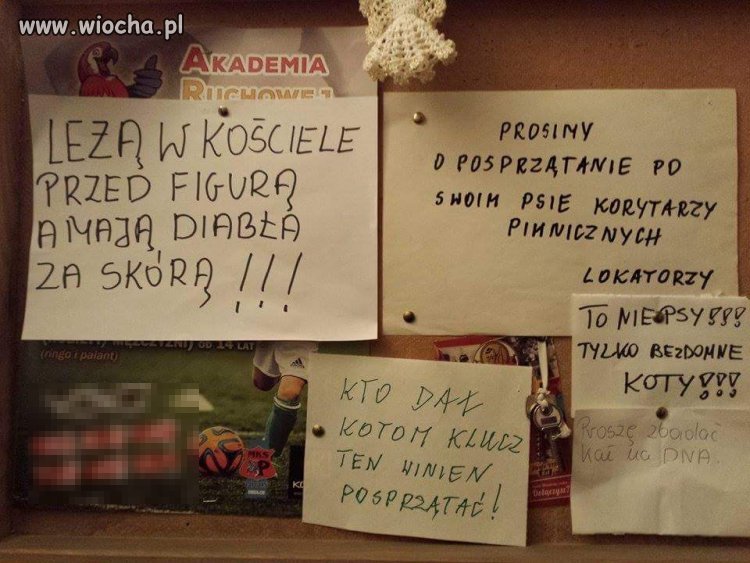 www.wiocha.pl
AKADEMIA
RUCHOWEJ
LEŻĄ W KOŚCIELE
PRZED FIGURĄ
A MAJĄ DIABŁA
ZA SKÓRĄ !!!
PROSIMY
O POSPRZĄTANIE PO
SWOIM PSIE KORYTARZY
PIWNICZNYCH
LOKATORZY
TO NIE PSY!!!
TYLKO BEZDOMNE
KOTY!!!
Proszę zbadać
Kał na DNA.
KTO DAŁ
KOTOM KLUCZ
TEN WINIEN
POSPRZĄTAĆ!
MĘŻCZYŹNI) OD 14 LAT
(ringo i palant)
MKS